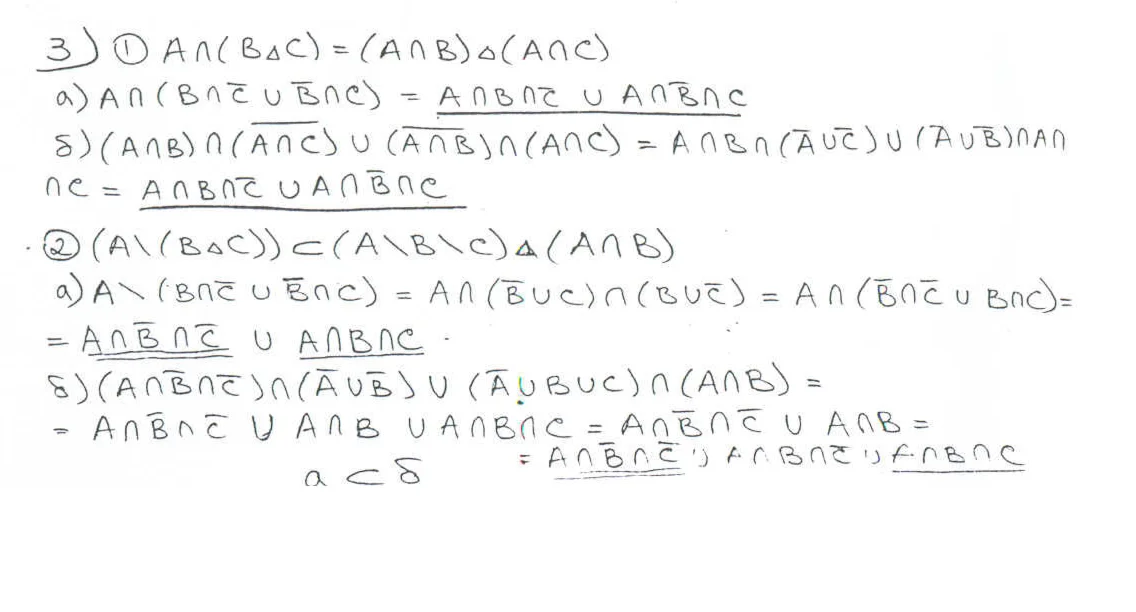 3) ① A∩(B△C) = (A∩B)△(A∩C)
а) A∩(B∩C̅ ∪ B̅∩C) = A∩B∩C̅ ∪ A∩B̅∩C
б) (A∩B)∩(A̅∩̅C̅) ∪ (A̅∩̅B̅)∩(A∩C) = A∩B∩(A̅∪C̅) ∪ (A̅∪B̅)∩A∩
∩C = A∩B∩C̅ ∪ A∩B̅∩C
② (A\(B△C)) ⊂ (A\B\C)△(A∩B)
а) A\(B∩C̅ ∪ B̅∩C) = A∩(B̅∪C)∩(B∪C̅) = A∩(B̅∩C̅ ∪ B∩C) =
= A∩B̅∩C̅ ∪ A∩B∩C
б) (A∩B̅∩C̅)∩(A̅∪B̅) ∪ (A̅∪B∪C)∩(A∩B) =
= A∩B̅∩C̅ ∪ A∩B ∪ A∩B∩C = A∩B̅∩C̅ ∪ A∩B =
= A∩B̅∩C̅ ∪ A∩B∩C̅ ∪ A∩B∩C
а ⊂ б